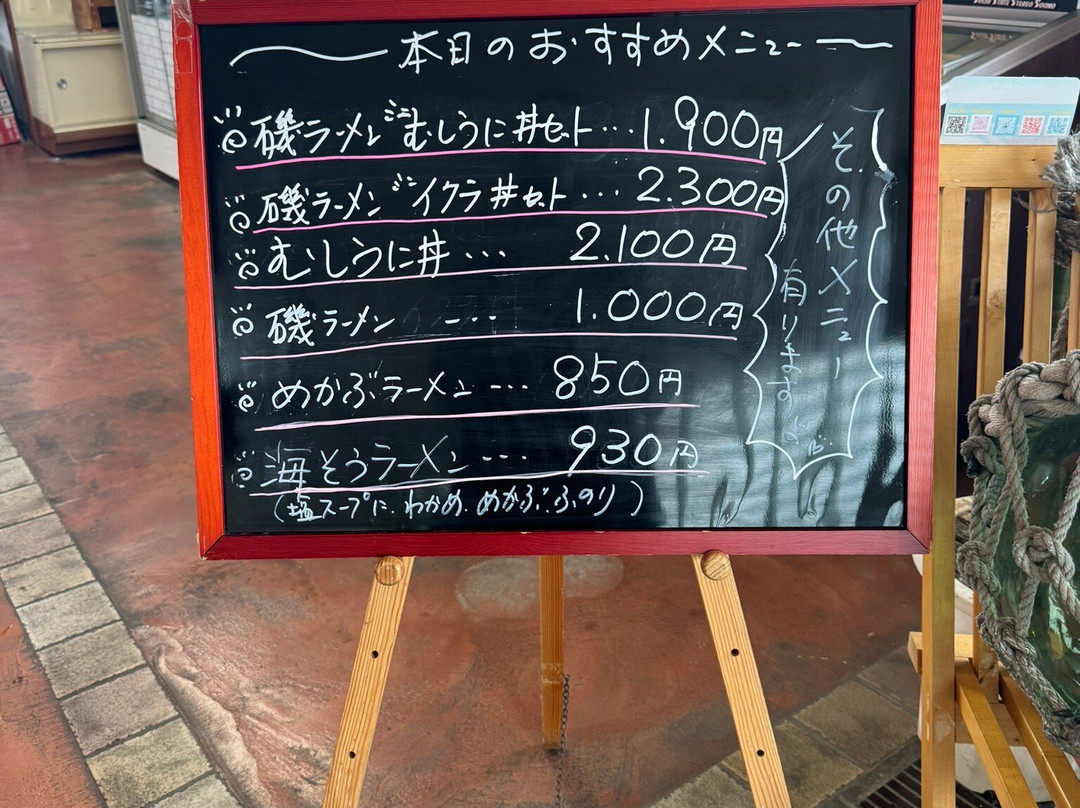 本日のおすすめメニュー
磯ラーメン ミニむしうに丼セット…1.900円
磯ラーメン ミニイクラ丼セット…2.300円
むしうに丼… 2.100円
磯ラーメン … 1.000円
めかぶラーメン… 850円
海そうラーメン… 930円
(塩スープに、わかめ、めかぶ、ふのり)
その他メニュー
有ります